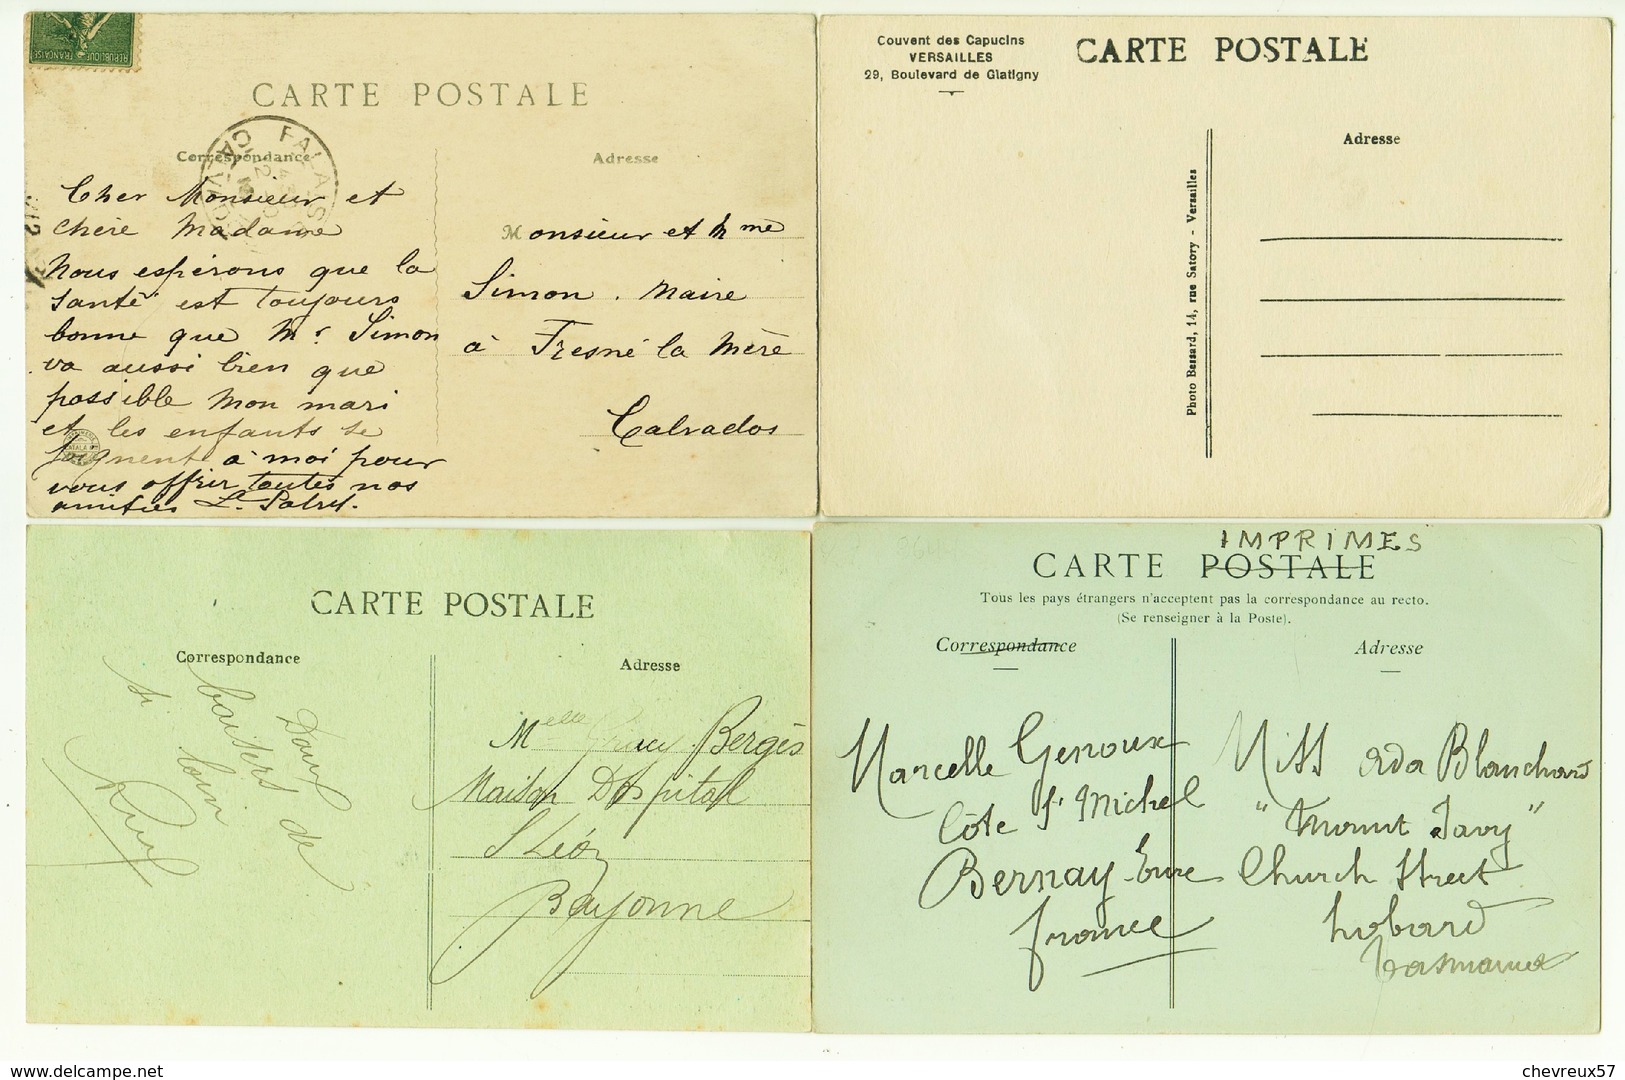 REPUBLIQUE FRANÇAISE
CARTE POSTALE
FALAISE
CALVADOS
Correspondance
Cher Monsieur et
chère Madame
Nous espérons que la
santé est toujours
bonne que Mr. Simon
va aussi bien que
possible Mon mari
et les enfants se
joignent à moi pour
vous offrir toutes nos
amitiés
Adresse
Monsieur et Mme
Simon. Maire
à Fresné la Mère
Calvados
Couvent des Capucins
VERSAILLES
29, Boulevard de Glatigny
CARTE POSTALE
Adresse
Photo Bessard, 14, rue Satory - Versailles
CARTE POSTALE
Correspondance
Doux
baisers de
si loin
Adresse
Melle Bergès
Maison Dospital
St Léon
Bayonne
IMPRIMES
CARTE POSTALE
Tous les pays étrangers n'acceptent pas la correspondance au recto.
(Se renseigner à la Poste).
Correspondance
Marcelle Genoux
Côte St Michel
Bernay-Eure
france
Adresse
Miss ada Blanchard
"Mount Tavy"
Church Street
hobard
tasmania
delcampe.net
chevreux57